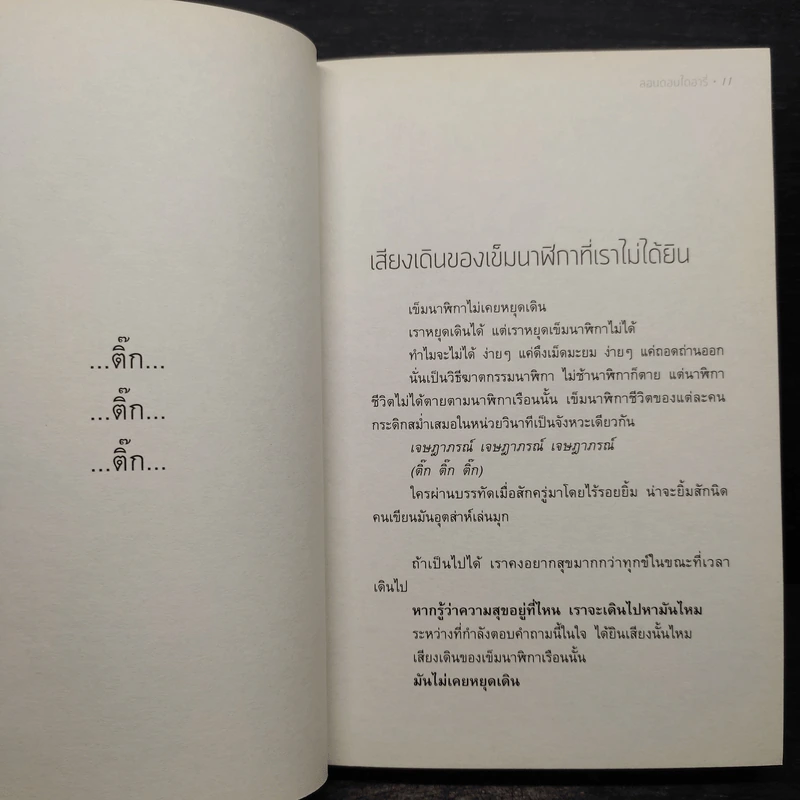 ...ติ๊ก...
...ติ๊ก...
...ติ๊ก...
ลอนดอนไดอารี่ • 11
เสียงเดินของเข็มนาฬิกาที่เราไม่ได้ยิน
เข็มนาฬิกาไม่เคยหยุดเดิน
เราหยุดเดินได้ แต่เราหยุดเข็มนาฬิกาไม่ได้
ทำไมจะไม่ได้ ง่ายๆ แค่ดึงเม็ดมะยม ง่ายๆ แค่ถอดถ่านออก
นั่นเป็นวิธีฆาตกรรมนาฬิกา ไม่ช้านาฬิกาก็ตาย แต่นาฬิกา
ชีวิตไม่ได้ตายตามนาฬิกาเรือนนั้น เข็มนาฬิกาชีวิตของแต่ละคน
กระดิกสม่ำเสมอในหน่วยวินาทีเป็นจังหวะเดียวกัน
เจษฎาภรณ์ เจษฎาภรณ์ เจษฎาภรณ์
(ติ๊ก ติ๊ก ติ๊ก)
ใครผ่านบรรทัดเมื่อสักครู่มาโดยไร้รอยยิ้ม น่าจะยิ้มสักนิด
คนเขียนมันอุตส่าห์เล่นมุก
ถ้าเป็นไปได้ เราคงอยากสุขมากกว่าทุกข์ในขณะที่เวลา
เดินไป
หากรู้ว่าความสุขอยู่ที่ไหน เราจะเดินไปหามันไหม
ระหว่างที่กำลังตอบคำถามนี้ในใจ ได้ยินเสียงนั้นไหม
เสียงเดินของเข็มนาฬิกาเรือนนั้น
มันไม่เคยหยุดเดิน